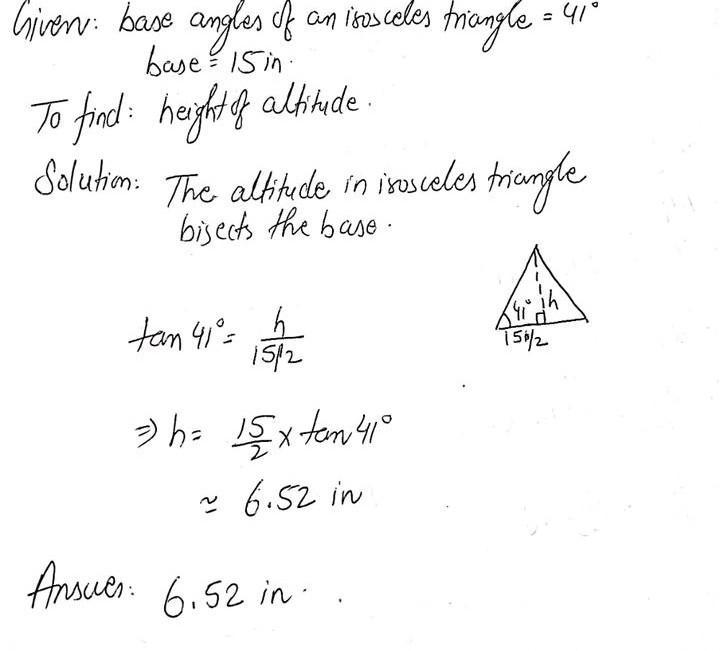 Given: base angles of an isosceles triangle = 41°
base = 15 in.
To find: height of altitude.
Solution: The altitude in isosceles triangle
bisects the base.
41° h
15/2
tan 41° = h
15/2
⇒ h = 15/2 x tan 41°
≃ 6.52 in
Answer: 6.52 in.